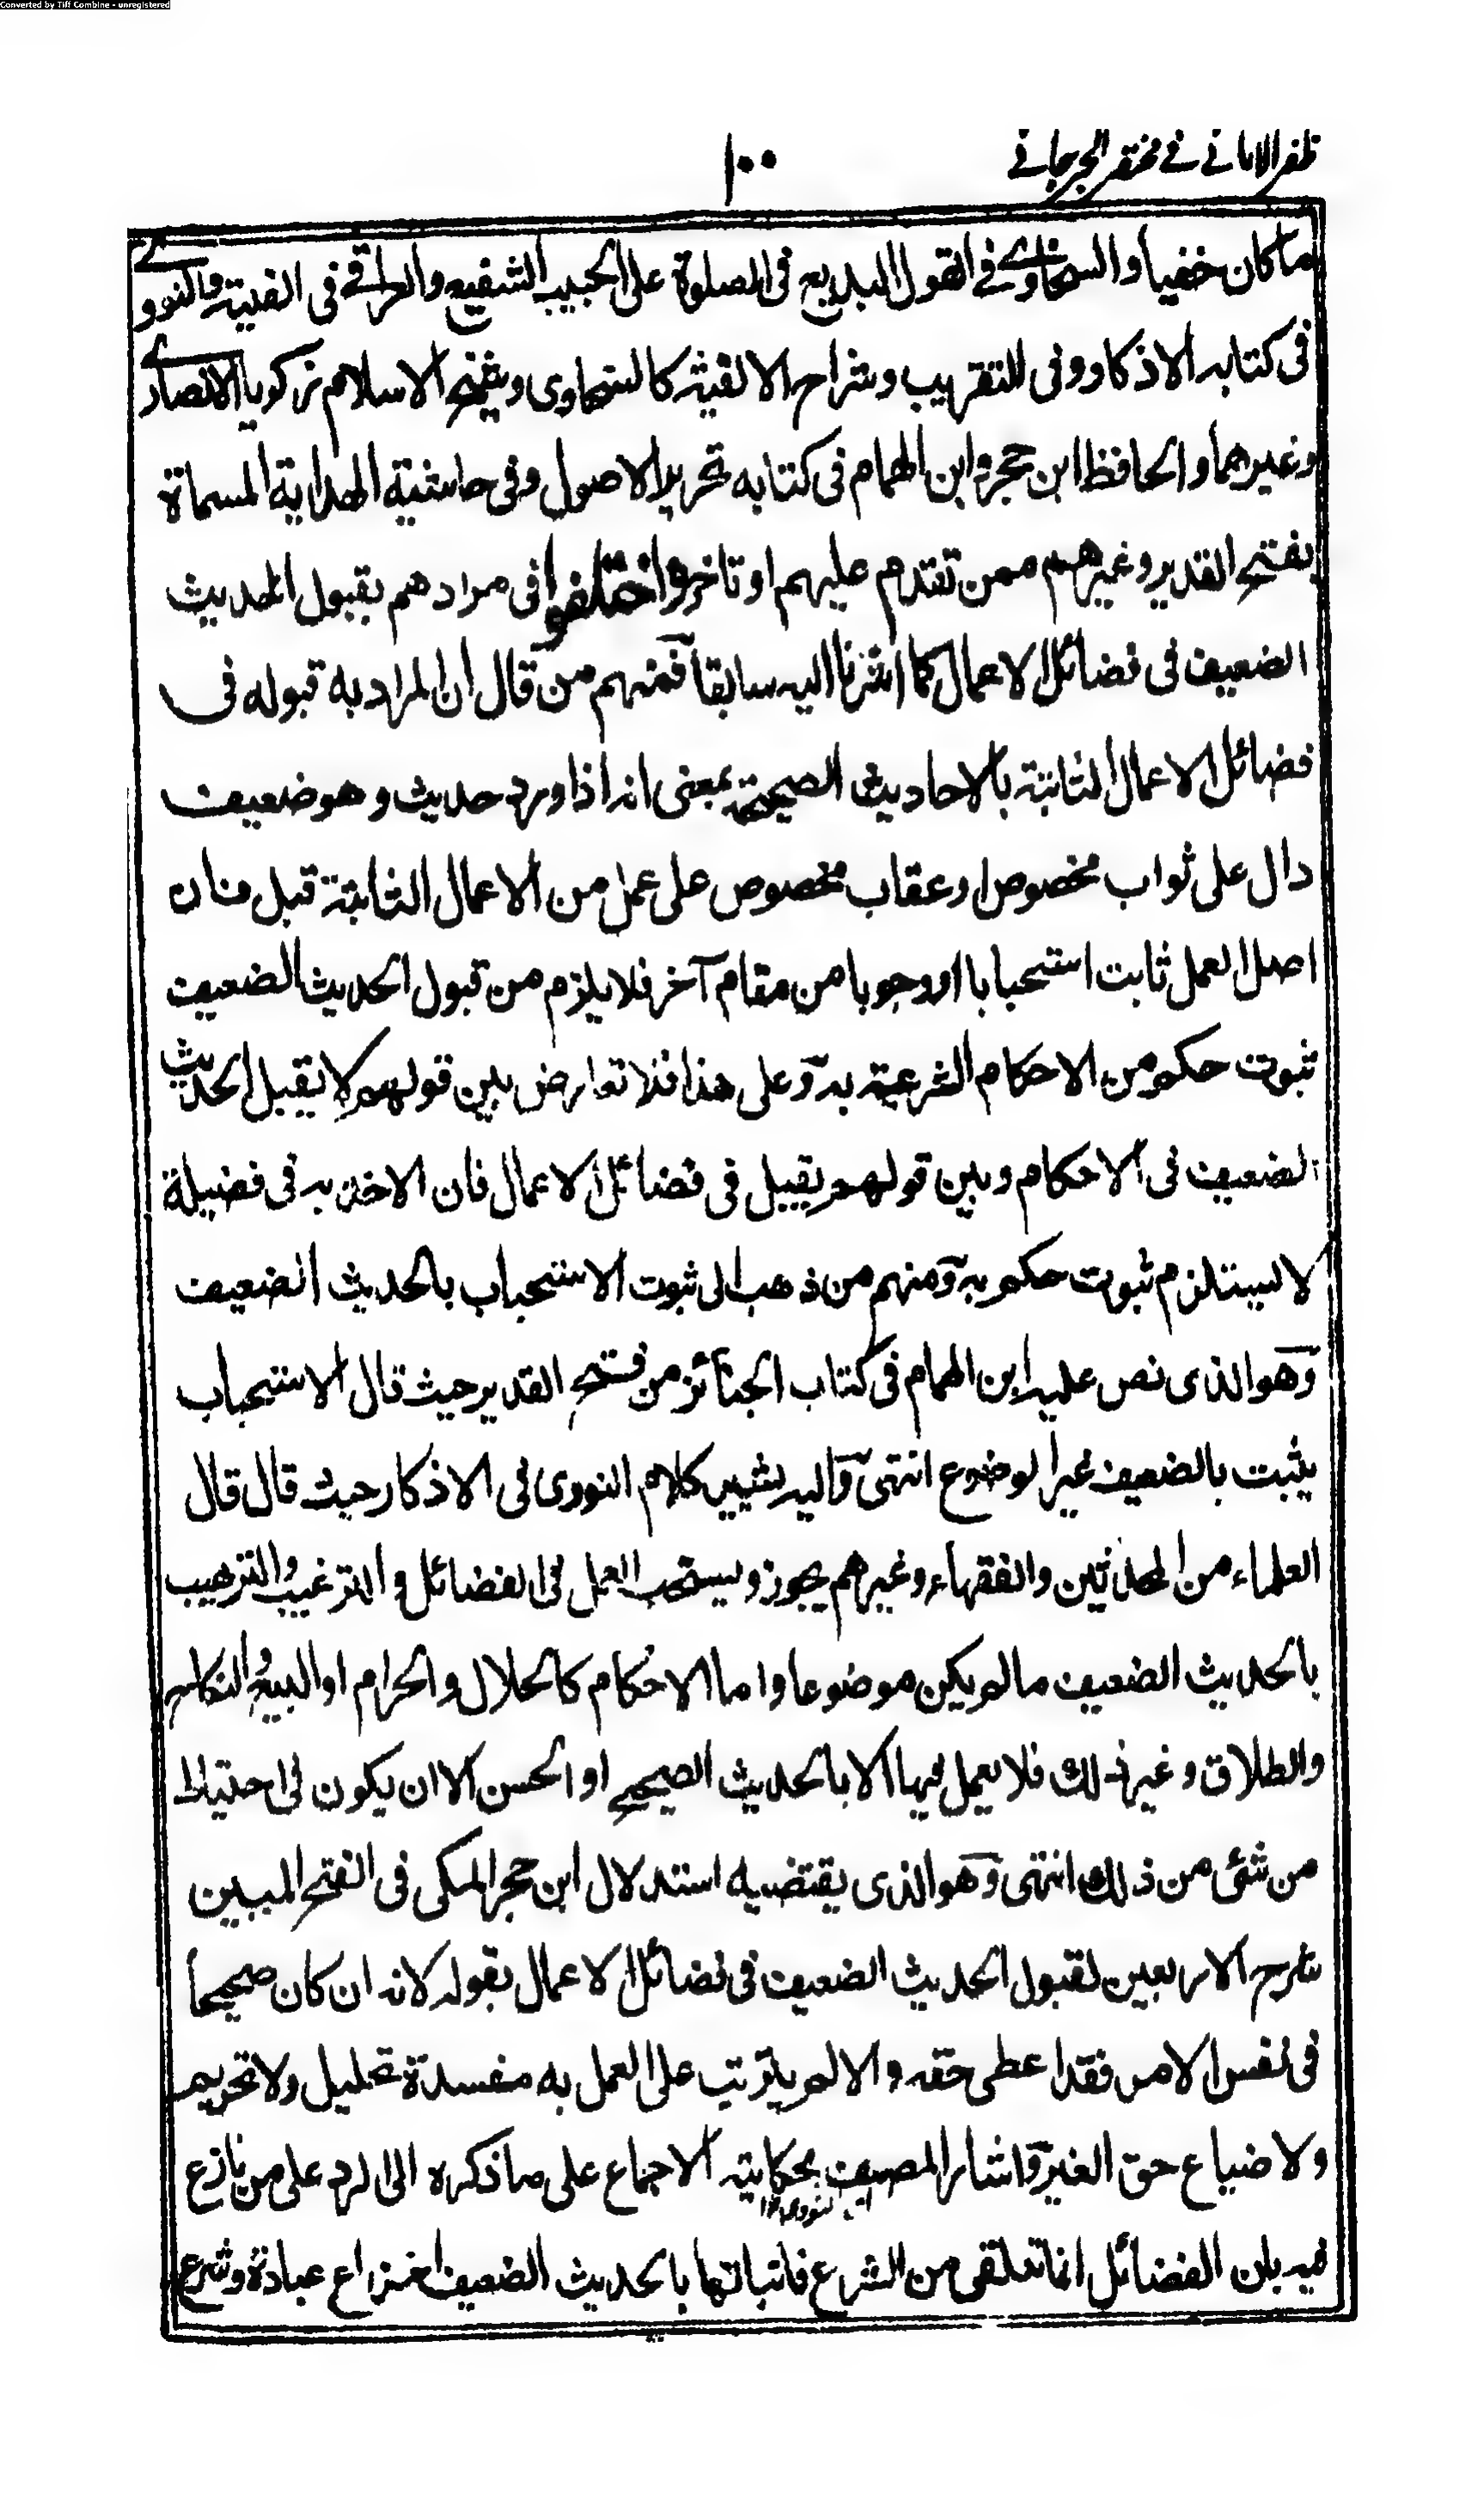 Converted by Tiff Combine - unregistered
ظفر الامانی فی مختصر الجرجانی
١٠٠
ما كان خفيا والسخاوی فی القول البديع فی الصلوة علی الحبيب الشفيع والعراقی فی الفيته والنووی
فی كتابه الاذكار وفی التقريب وشراح الالفية كالسخاوی وشيخ الاسلام زكريا الانصاری
وغيرهما والحافظ ابن حجر وابن الهمام فی كتابه تحرير الاصول وفی حاشية الهداية المسماة
بفتح القدير وغيرهم ممن تقدم عليهم او تاخر واختلفوا فی مرادهم بقبول الحديث
الضعيف فی فضائل الاعمال كما اشرنا اليه سابقا فمنهم من قال ان المراد به قبوله فی
فضائل الاعمال الثابتة بالاحاديث الصحيحة بمعنی انه اذا ورد حديث وهو ضعيف
دال علی ثواب مخصوص او عقاب مخصوص علی عمل من الاعمال الثابتة قبل فان
اصل العمل ثابت استحبابا او وجوبا من مقام آخر فلا يلزم من قبول الحديث الضعيف
ثبوت حكم من الاحكام الشرعية به وعلی هذا فلا تعارض بين قولهم لا يقبل الحديث
الضعيف فی الاحكام وبين قولهم يقبل فی فضائل الاعمال فان الاخذ به فی فضيلة
لا يستلزم ثبوت حكم به ومنهم من ذهب الی ثبوت الاستحباب بالحديث الضعيف
وهو الذی نص عليه ابن الهمام فی كتاب الجنائز من فتح القدير حيث قال الاستحباب
يثبت بالضعيف غير الموضوع انتهی واليه يشير كلام النووی فی الاذكار حيث قال قال
العلماء من المحدثين والفقهاء وغيرهم يجوز ويستحب العمل فی الفضائل والترغيب والترهيب
بالحديث الضعيف ما لم يكن موضوعا واما الاحكام كالحلال والحرام او البيع والنكاح
والطلاق وغير ذلك فلا يعمل فيها الا بالحديث الصحيح او الحسن الا ان يكون فی احتياط
من شئ من ذلك انتهی وهو الذی يقتضيه استدلال ابن حجر المكی فی الفتح المبين
شرح الاربعين لقبول الحديث الضعيف فی فضائل الاعمال بقوله لانه ان كان صحيحا
فی نفس الامر فقد اعطی حقه والا لم يترتب علی العمل به مفسدة تحليل ولا تحريم
ولا ضياع حق الغير واشار المصنف بحكاية الاجماع علی ما ذكره الی الرد علی من نازع
النووی ١٢
فيه بان الفضائل انما تتلقی من الشرع فاثباتها بالحديث الضعيف اختراع عبادة وشرع